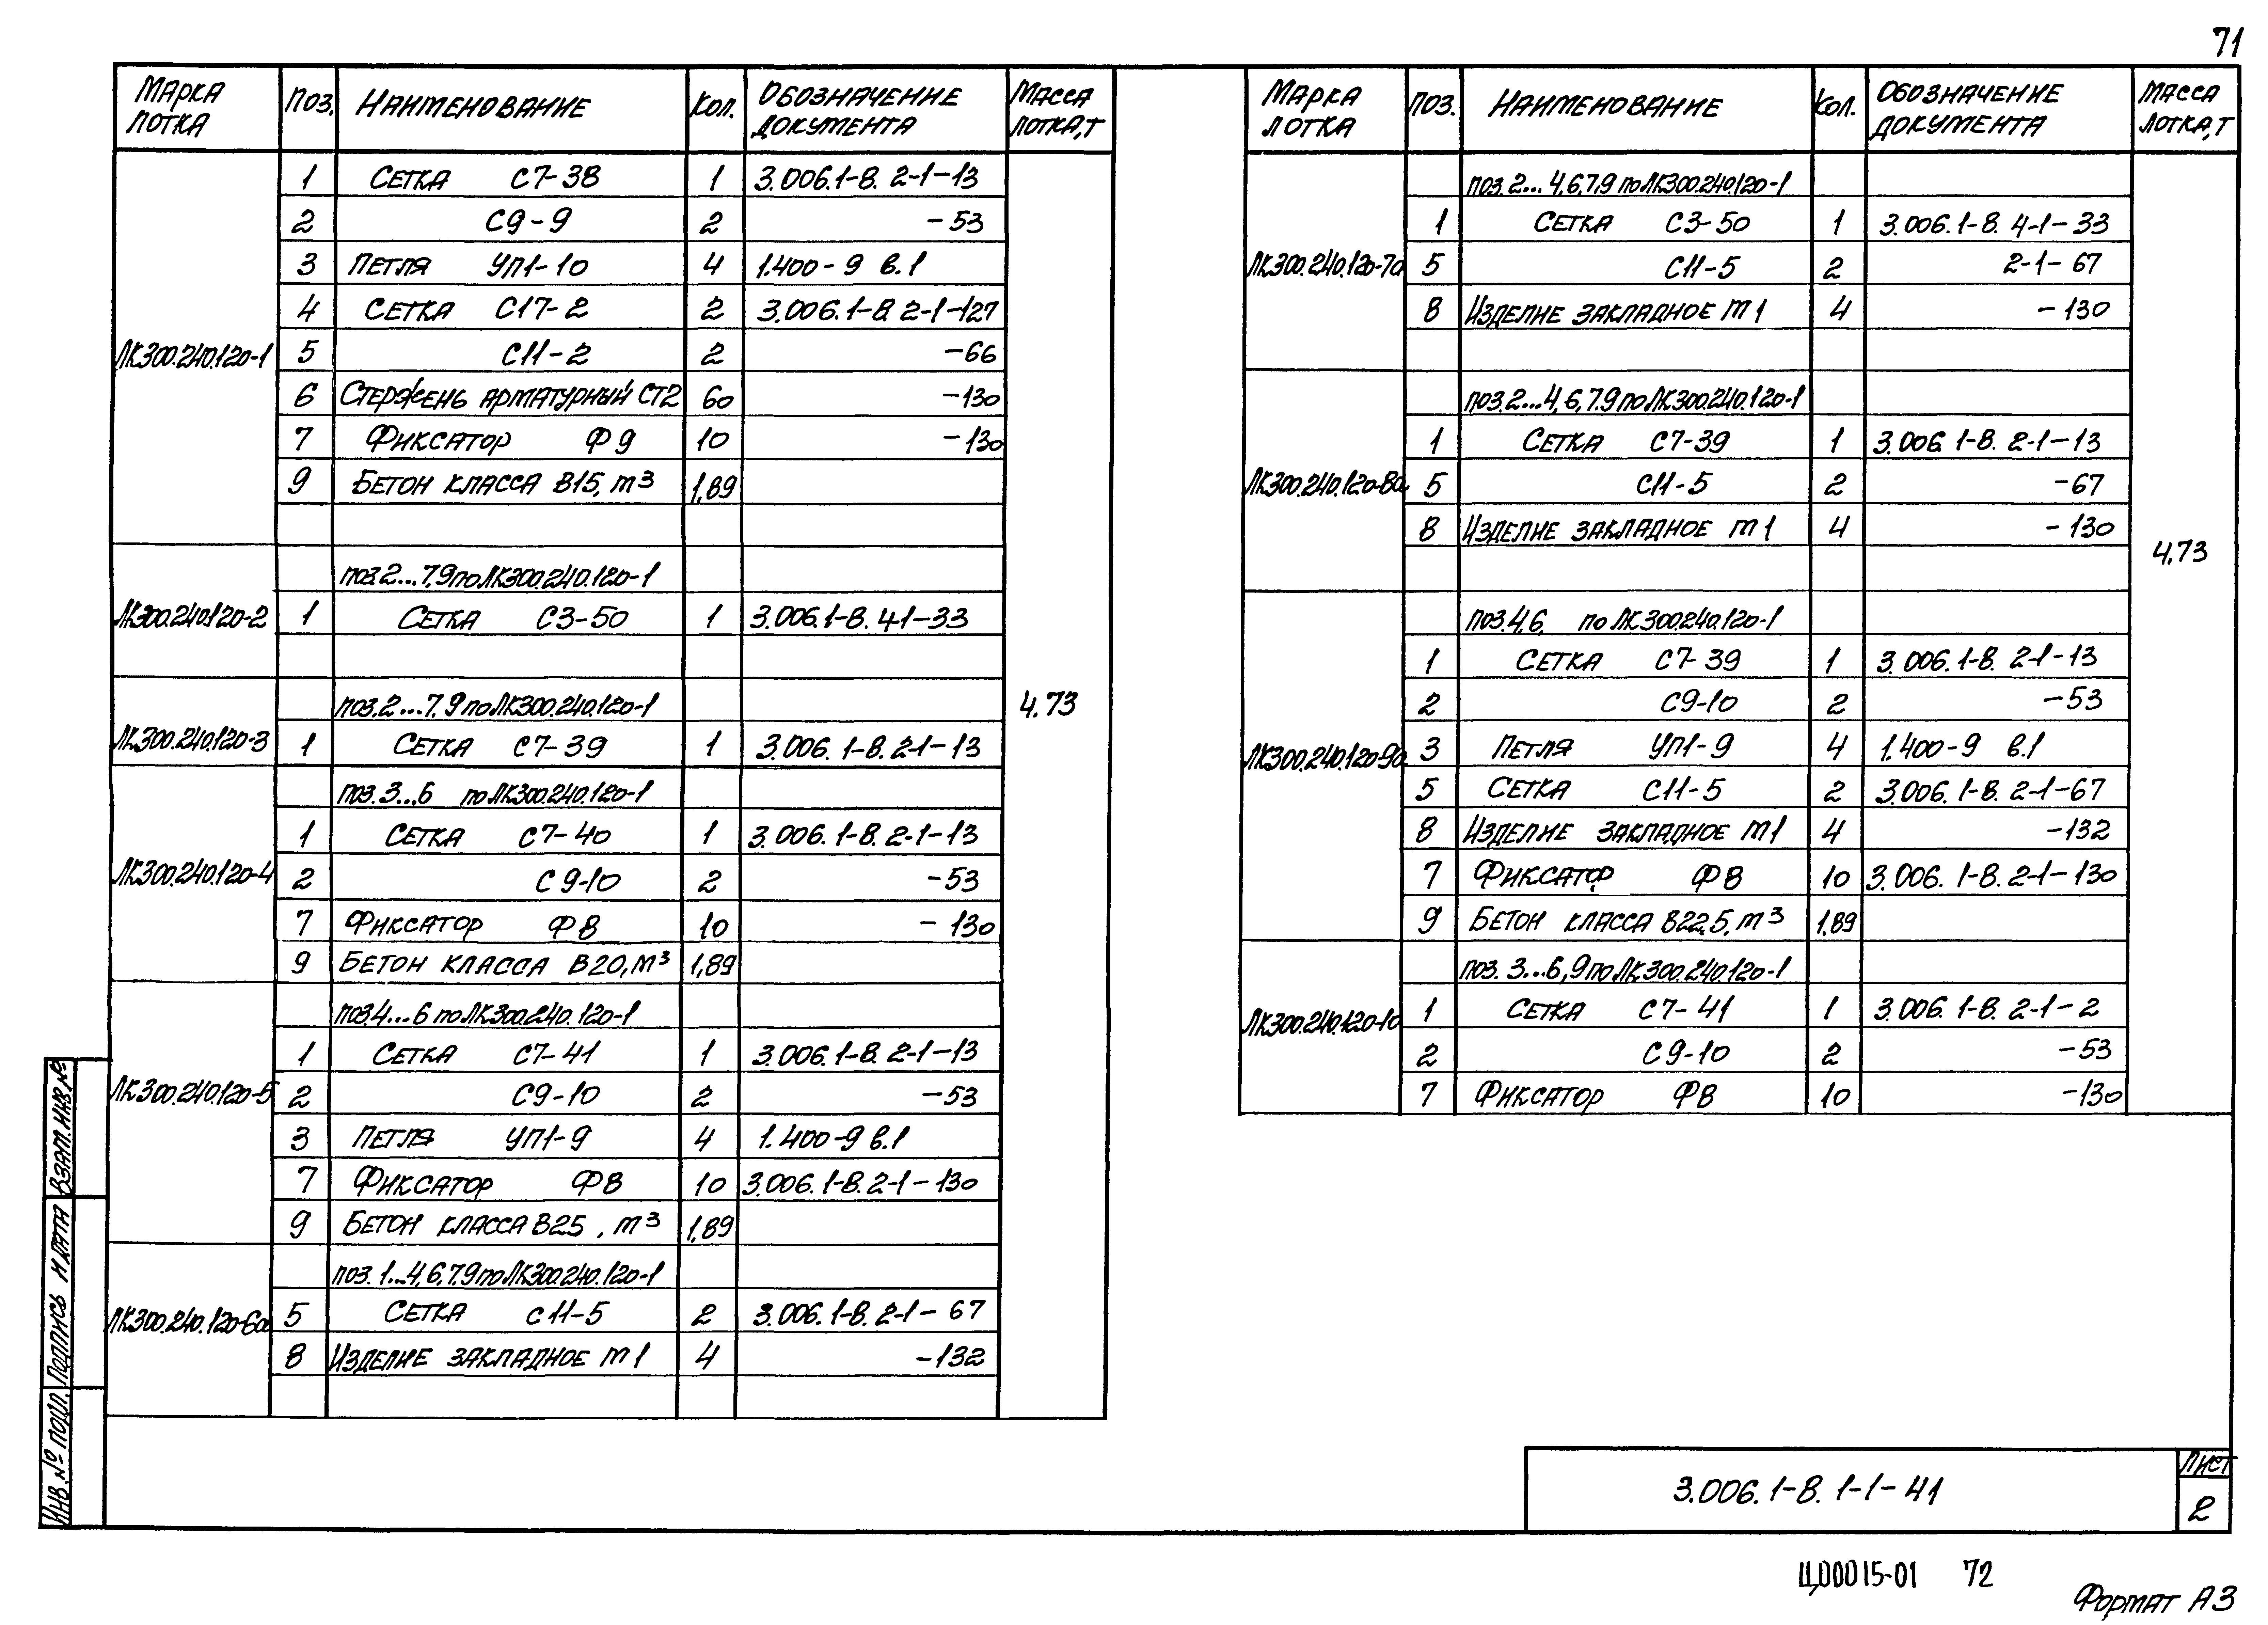 71
Марка лотка | Поз. | Наименование | Кол. | Обозначение документа | Масса лотка, т
ЛК300.240.120-1
1 | Сетка С7-38 | 1 | 3.006.1-8. 2-1-13
2 | С9-9 | 2 | -53
3 | Петля УП1-10 | 4 | 1.400-9 в.1
4 | Сетка С17-2 | 2 | 3.006.1-8 2-1-127
5 | С11-2 | 2 | -66
6 | Стержень арматурный СТ2 | 60 | -130
7 | Фиксатор Ф9 | 10 | -130
9 | Бетон класса В15, м3 | 1,89
ЛК300.240.120-2
поз.2...7,9 по ЛК300.240.120-1
1 | Сетка С3-50 | 1 | 3.006.1-8. 41-33
ЛК300.240.120-3
поз.2...7,9 по ЛК300.240.120-1
1 | Сетка С7-39 | 1 | 3.006.1-8. 2-1-13
4.73
ЛК300.240.120-4
поз.3...6 по ЛК300.240.120-1
1 | Сетка С7-40 | 1 | 3.006.1-8. 2-1-13
2 | С9-10 | 2 | -53
7 | Фиксатор Ф8 | 10 | -130
9 | Бетон класса В20, м3 | 1,89
ЛК300.240.120-5
поз.4...6 по ЛК300.240.120-1
1 | Сетка С7-41 | 1 | 3.006.1-8. 2-1-13
2 | С9-10 | 2 | -53
3 | Петля УП1-9 | 4 | 1.400-9 в.1
7 | Фиксатор Ф8 | 10 | 3.006.1-8. 2-1-130
9 | Бетон класса В25, м3 | 1,89
ЛК300.240.120-6а
поз.1...4,6,7,9 по ЛК300.240.120-1
5 | Сетка С11-5 | 2 | 3.006.1-8. 2-1-67
8 | Изделие закладное м1 | 4 | -132
Марка лотка | Поз. | Наименование | Кол. | Обозначение документа | Масса лотка, т
ЛК300.240.120-7а
поз.2...4,6,7,9 по ЛК300.240.120-1
1 | Сетка С3-50 | 1 | 3.006.1-8. 4-1-33
5 | С11-5 | 2 | 2-1-67
8 | Изделие закладное м1 | 4 | -130
ЛК300.240.120-8а
поз.2...4,6,7.9 по ЛК300.240.120-1
1 | Сетка С7-39 | 1 | 3.006.1-8. 2-1-13
5 | С11-5 | 2 | -67
8 | Изделие закладное м1 | 4 | -130
4.73
ЛК300.240.120-9а
поз.4,6. по ЛК300.240.120-1
1 | Сетка С7-39 | 1 | 3.006.1-8. 2-1-13
2 | С9-10 | 2 | -53
3 | Петля УП1-9 | 4 | 1.400-9 в.1
5 | Сетка С11-5 | 2 | 3.006.1-8. 2-1-67
8 | Изделие закладное м1 | 4 | -132
7 | Фиксатор Ф8 | 10 | 3.006.1-8. 2-1-130
9 | Бетон класса В22,5, м3 | 1,89
ЛК300.240.120-10
поз.3...6,9 по ЛК300.240.120-1
1 | Сетка С7-41 | 1 | 3.006.1-8. 2-1-2
2 | С9-10 | 2 | -53
7 | Фиксатор Ф8 | 10 | -130
Взам.инв.№
Подпись и дата
Инв.№ подл.
3.006.1-8. 1-1-41
Лист
2
Ц00015-01 72
Формат А3